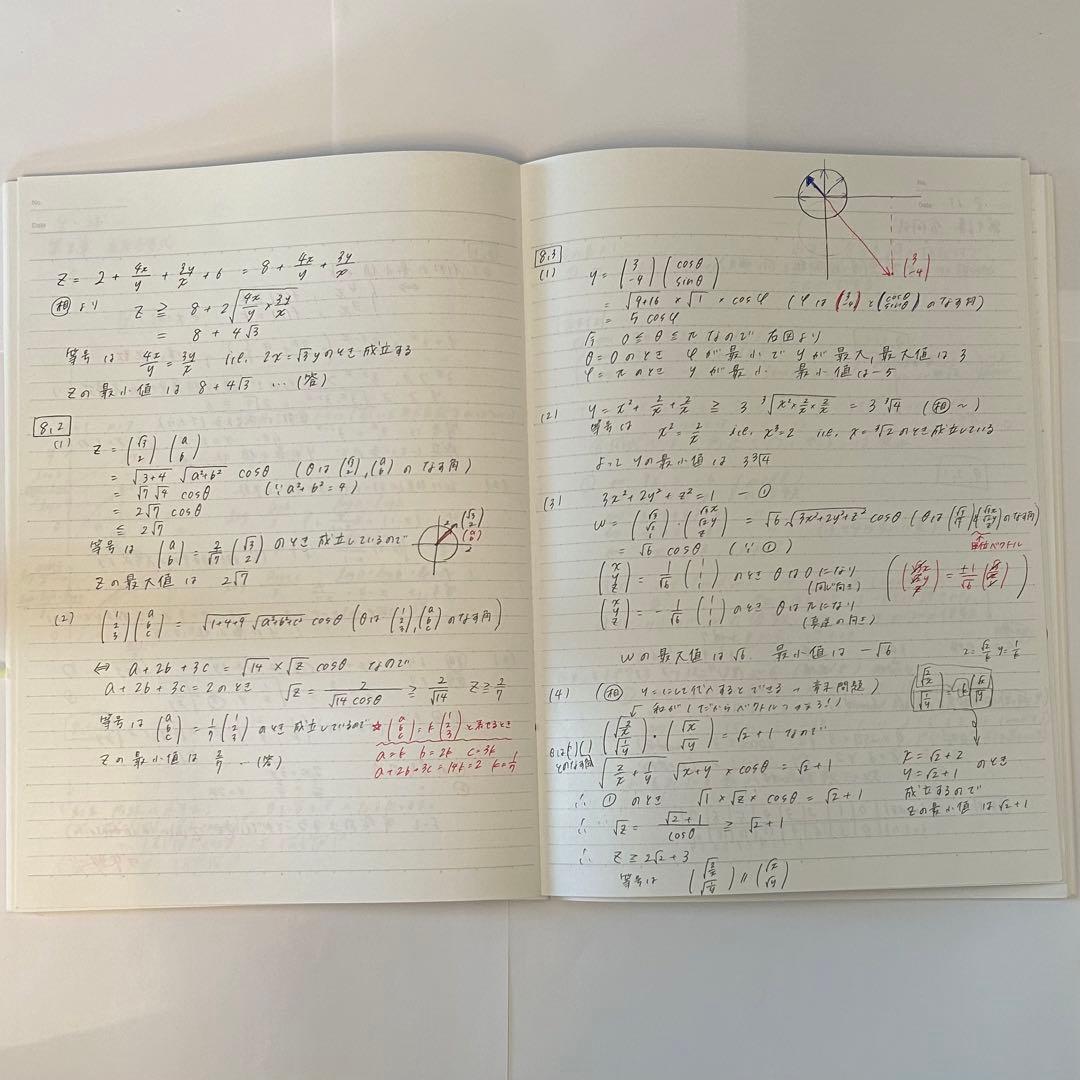 No.
Date
Z = 2 + 4x/y + 3y/x + 6 = 8 + 4x/y + 3y/x
相 より Z ≧ 8 + 2√(4x/y × 3y/x)
= 8 + 4√3
等号は 4x/y = 3y/x i.e. 2x = √3y のとき 成立する
Zの最小値は 8 + 4√3 … (答)
8.2
(1) Z = (√3 2) (a b)
= √(3+4) √(a²+b²) cosθ (θは (√3 2), (a b) のなす角)
= √7 √4 cosθ (∵ a²+b² = 4)
= 2√7 cosθ
≦ 2√7
等号は (a b) = 2/√7 (√3 2) のとき 成立しているので
(√3 2)
(a b)
2
Zの最大値は 2√7
(2) (1 2 3) (a b c) = √(1+4+9) √(a²+b²+c²) cosθ (θは (1 2 3), (a b c) のなす角)
⇔ a + 2b + 3c = √14 × √Z cosθ なので
a + 2b + 3c = 2 のとき √Z = 2/(√14 cosθ) ≧ 2/√14 Z ≧ 2/7
等号は (a b c) = 1/7 (1 2 3) のとき 成立しているので ☆ (a b c) = k (1 2 3) と表せるとき
a = k b = 2k c = 3k
Zの最小値は 2/7 … (答)
a + 2b + 3c = 14k = 2 k = 1/7
No.
Date
(3 -4)
8.3
(1) y = (3 -4) (cosθ sinθ)
= √(9+16) × √1 × cosφ (φは (3 -4) と (cosθ sinθ) のなす角)
= 5 cosφ
0 ≦ θ ≦ π なので 右図より
θ = 0 のとき φが最小で yが最大, 最大値は 3
φ = π のとき yが最小 最小値は -5
(2) y = x² + 2/x + 2/x ≧ 3 ³√(x² × 2/x × 2/x) = 3 ³√4 (相 〜)
等号は x² = 2/x i.e. x³ = 2 i.e. x = ³√2 のとき成立している
よって yの最小値は 3³√4
(3) 3x² + 2y² + z² = 1 — ①
w = (√3 √2 1) · (√3x √2y z) = √6 √(3x²+2y²+z²) cosθ (θは のなす角)
単位ベクトル
= √6 cosθ (∵ ①)
(x y z) = 1/√6 (1 1 1) のとき θは0になり
(同じ向き)
(x y z) = -1/√6 (1 1 1) のとき θはπになり
(真逆の向き)
wの最大値は √6. 最小値は -√6
(4) (相 y = にして代入するとできる → 青子問題)
↓ 和が1だからベクトルつかえる!
(√(2/x) √(1/y)) · (√x √y) = √2 + 1 なので
θは( )( )とのなす角
√(2/x + 1/y) √(x+y) × cosθ = √2 + 1
x = √2 + 2
y = √2 + 1 のとき
成立するので
Zの最小値は √2 + 1
∴ ① のとき √1 × √Z × cosθ = √2 + 1
∴ √Z = (√2 + 1)/cosθ ≧ √2 + 1
∴ Z ≧ 2√2 + 3
等号は (√(2/x) √(1/y)) // (√x √y)